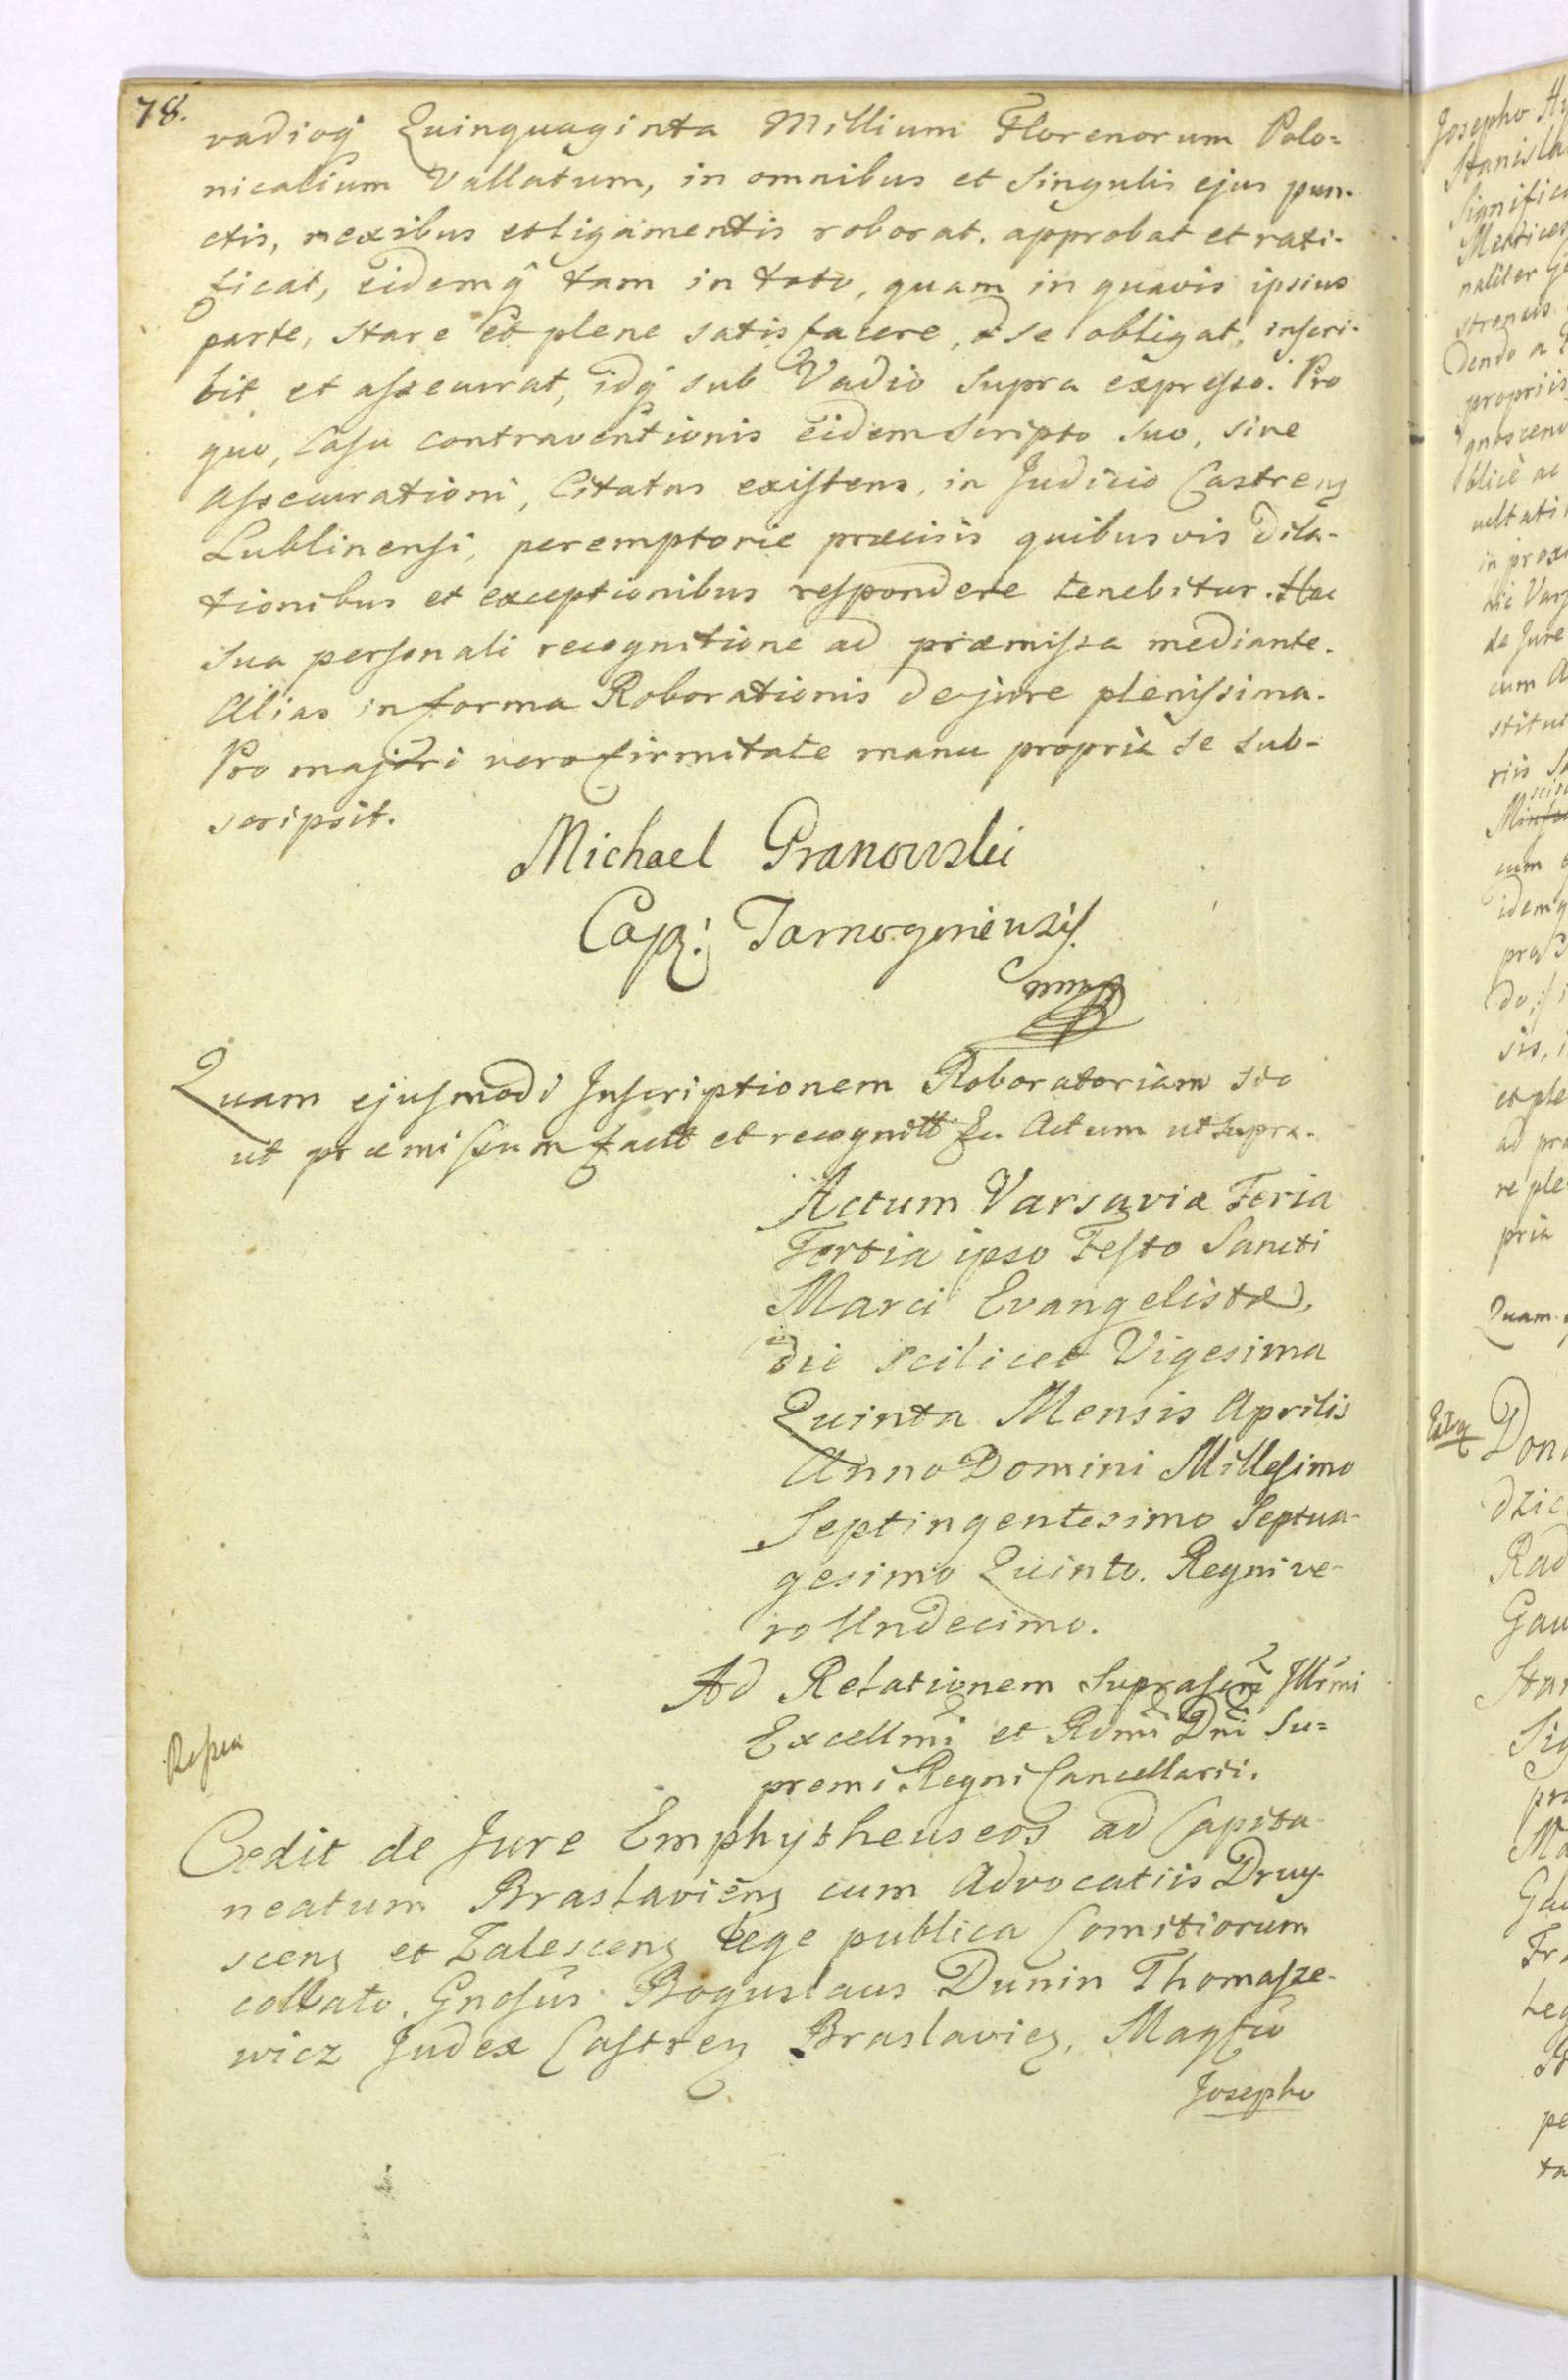 78.
vadioq̃ Quinquaginta Millium Florenorum Polo=
nicalium Vallatum, in omnibus et Singulis ejus pun-
ctis, nexibus et ligamentis roborat. approbat et rati-
ficat, eidemq̃ tam in toto, quam in quavis ipsius
parte, stare et plene satisfacere, se obligat, inscri-
bit et assecurat, idq̃ sub Vadio supra expresso. Pro
quo, Casu contraventionis eidem Scripto suo, sive
Assecurationi, Citatus existens, in Judicio Castrens
Lublinensi, peremptorie præcisis quibusvis dila-
tionibus et exceptionibus respondere tenebitur. Hac
sua personali recognitione ad præmissa mediante.
Alias in forma Roborationis de jure plenissima.
Pro majori vero firmitate manu propria se sub-
scripsit.
Michael Granowski
Cap: Tarnogoriensis
mmp
Quam ejusmodi Inscriptionem Roboratoriam sic
ut præmissum factt et recognitt Actum ut supra.
Actum Varsaviæ Feria
Tertia ipso Festo Sancti
Marci Evangelistæ,
die scilicet Vigesima
Quinta Mensis Aprilis
Anno Domini Millesimo
Septingentesimo Septua-
gesimo Quinto. Regni ve-
ro Undecimo.
Ad Relationem Suprascri Illrmi
Excellmi et Rdmi Dni Su=
premi Regni Cancellarii.
Cedit de Jure Emphytheuseos ad Capita-
neatum Braslaviens cum Advocatiis Druy-
scens et Zalescens Lege publica Comitiorum
collato. Gnosus Boguslaus Dunin Thomasze-
wicz Judex Castren Braslavien, Magfco
Josepho
Josepho
Quam